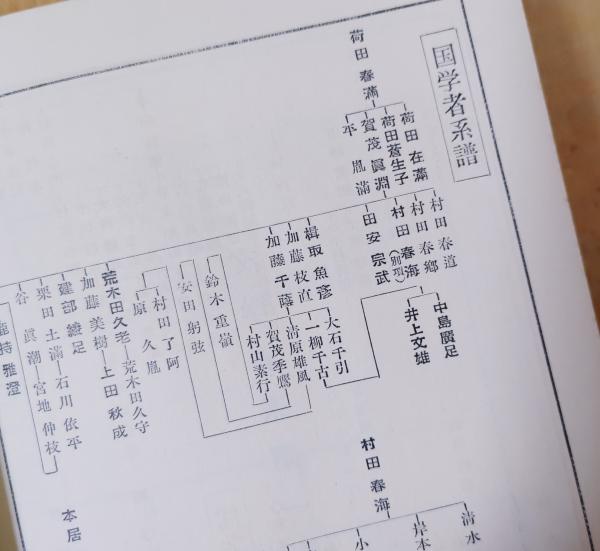 国学者系譜
荷田春満
荷田在満
荷田蒼生子
賀茂眞淵
平
胤満
村田春道
村田春郷
村田春海(別記)
田安宗武
楫取魚彦
加藤枝直
加藤千蔭
鈴木重嶺
安田躬弦
村田了阿
原久胤
荒木田久老
荒木田久守
加藤美樹
上田秋成
建部綾足
栗田土満
石川依平
谷眞潮
宮地仲枝
持雅澄
中島廣足
井上文雄
大石千引
一柳千古
清原雄風
賀茂季鷹
村山素行
村田春海
清水
岸本
小
本居